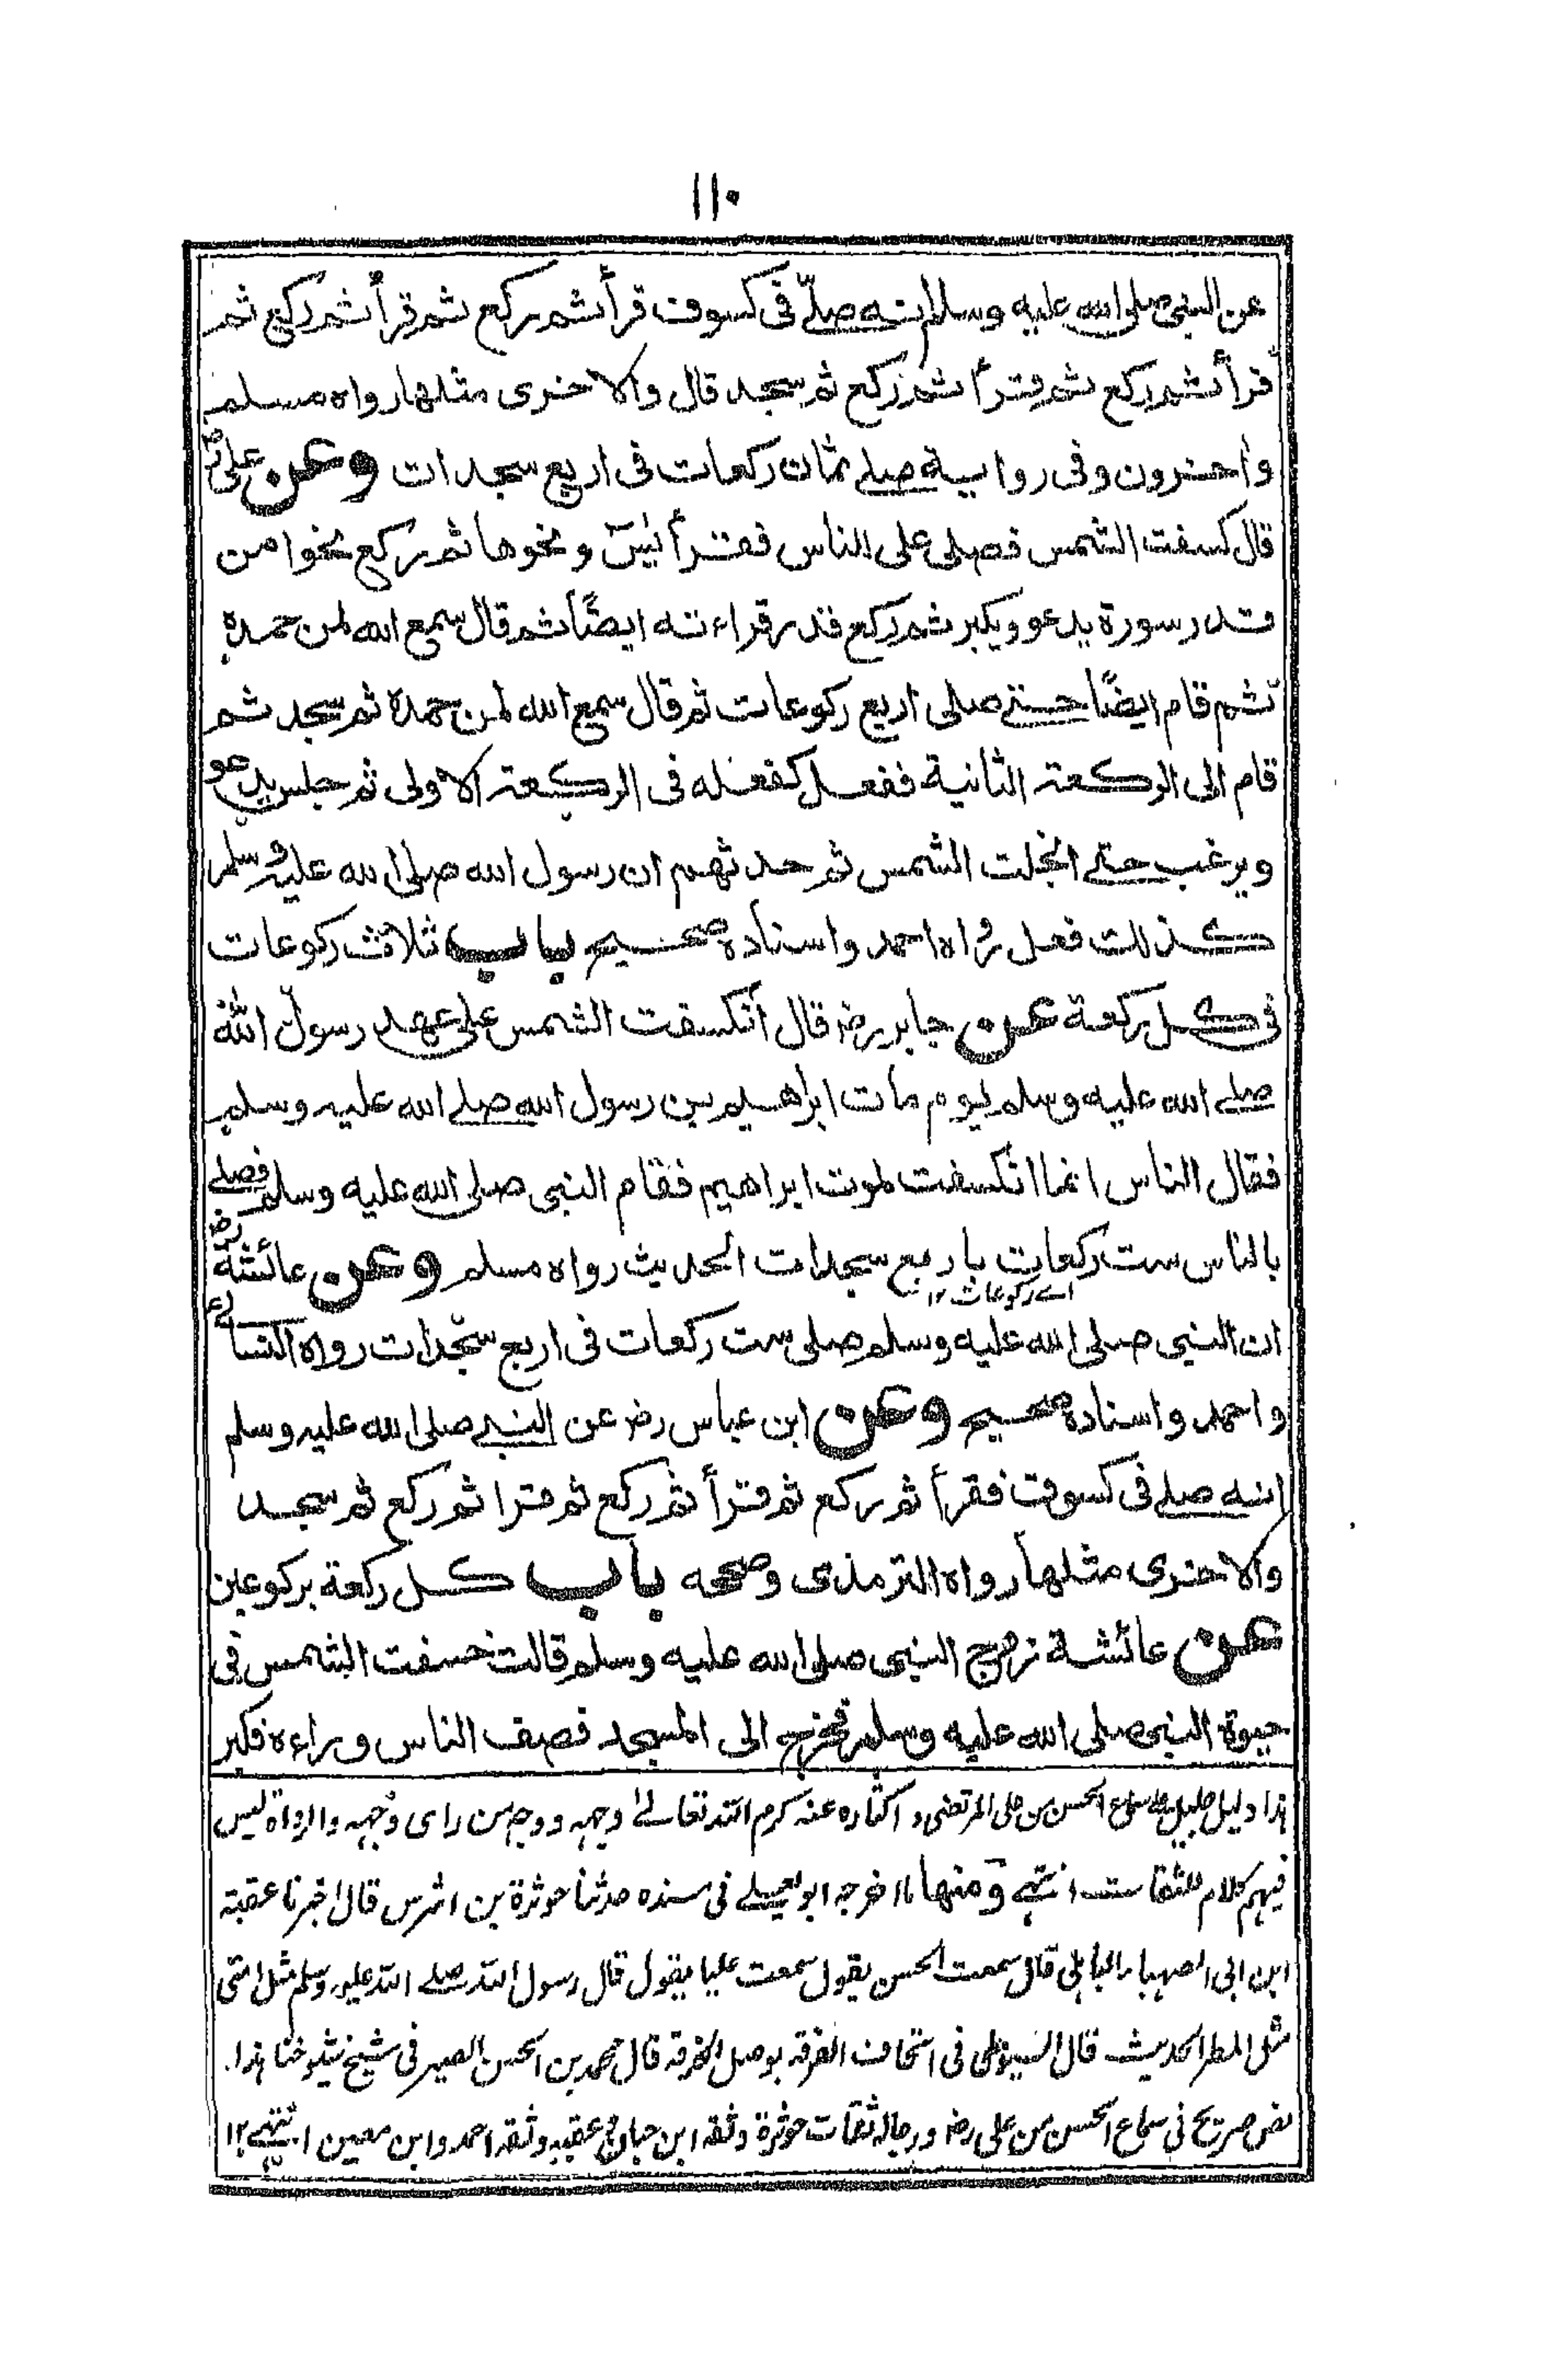 ١١٠
عن النبي صلى الله عليه وسلم انه صلى فى كسوف قرأ ثم ركع ثم قرأ ثم ركع ثم
قرأ ثم ركع ثم قرأ ثم ركع ثم سجد قال والاخرى مثلها رواه مسلم
واخرون وفى رواية صلى ثمان ركعات فى اربع سجدات وعن على رض
قال كسفت الشمس فصلى على للناس فقرأ يٰسٓ ونحوها ثم ركع نحوا من
قدر سورة يدعو ويكبر ثم ركع قدر قراءته ايضًا ثم قال سمع الله لمن حمده
ثم قام ايضًا حتى صلى اربع ركوعات ثم قال سمع الله لمن حمده ثم سجد ثم
قام الى الركعة الثانية ففعل كفعله فى الركعة الاولى ثم جلس يدعو
ويرغب حتى انجلت الشمس ثم حدثهم ان رسول الله صلى الله عليه وسلم
كذلك فعل رواه احمد واسناده صحيح باب ثلاث ركوعات
فى كل ركعة عن جابر رض قال انكسفت الشمس على عهد رسول الله
صلى الله عليه وسلم يوم مات ابراهيم بن رسول الله صلى الله عليه وسلم
فقال الناس انما انكسفت لموت ابراهيم فقام النبي صلى الله عليه وسلم فصلى
بالناس ست ركعات باربع سجدات الحديث رواه مسلم وعن عائشة رض
اے ركوعات ١٢
ان النبي صلى الله عليه وسلم صلى ست ركعات فى اربع سجدات رواه النسائى
واحمد واسناده صحيح وعن ابن عباس رض عن النبى صلى الله عليه وسلم
انه صلى فى كسوف فقرأ ثم ركع ثم قرأ ثم ركع ثم قرا ثم ركع ثم سجد
والاخرى مثلها رواه الترمذى وصححه باب كل ركعة بركوعين
عن عائشة زوج النبى صلى الله عليه وسلم قالت خسفت الشمس فى
حيوة النبى صلى الله عليه وسلم فخرج الى المسجد فصف الناس وراءه فكبر
هذا دليل جليل على سماع الحسن من على المرتضى و اكثاره عنه كرم الله تعالى وجهه ووجه من راى وجهه والرواة ليس
فيهم كلام للثقات انتهى ومنها ما اخرجه ابو يعلى فى مسنده حدثنا حوثرة بن اشرس قال اخبرنا عقبة
ابن ابى الصهباء الباهلى قال سمعت الحسن يقول سمعت عليا يقول قال رسول الله صلى الله عليه وسلم مثل امتى
مثل المطر الحديث قال السيوطى فى اتحاف الفرقة بوصل الخرقة قال محمد بن الحسن الصيرفى شيخ شيوخنا هذا
نص صريح فى سماع الحسن من على رض ورجاله ثقات حوثرة وثقه ابن حبان وعقبه وثقه احمد وابن معين انتهى ١٢